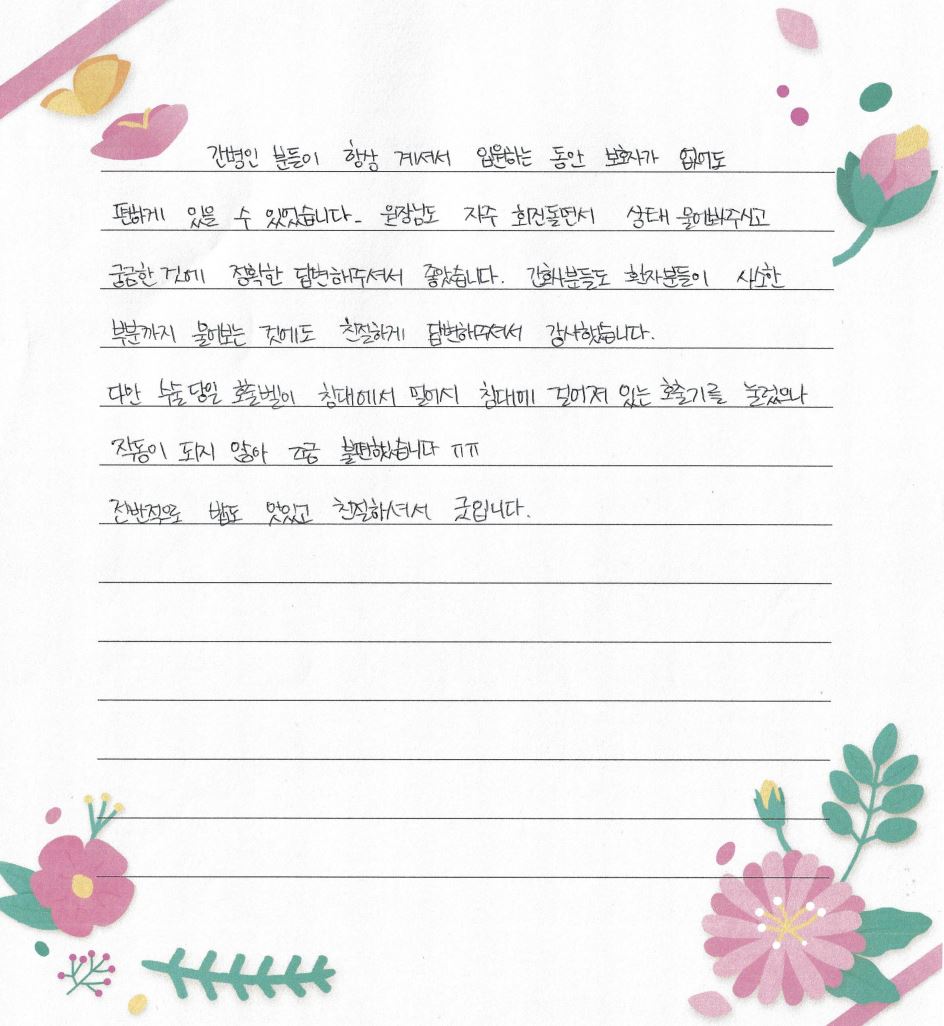 간병인 분들이 항상 계셔서 입원하는 동안 보호자가 없어도
편하게 있을 수 있었습니다. 원장님도 자주 회진돌면서 상태 물어봐주시고
궁금한 것에 정확한 답변해주셔서 좋았습니다. 간호사분들도 환자분들이 사소한
부분까지 물어보는 것에도 친절하게 답변해주셔서 감사했습니다.
다만 수술당일 호출벨이 침대에서 떨어져 침대에 걸어져 있는 호출기를 눌렀으나
작동이 되지 않아 조금 불편했습니다 ㅠㅠ
전반적으로 밥도 맛있고 친절하셔서 굿입니다.